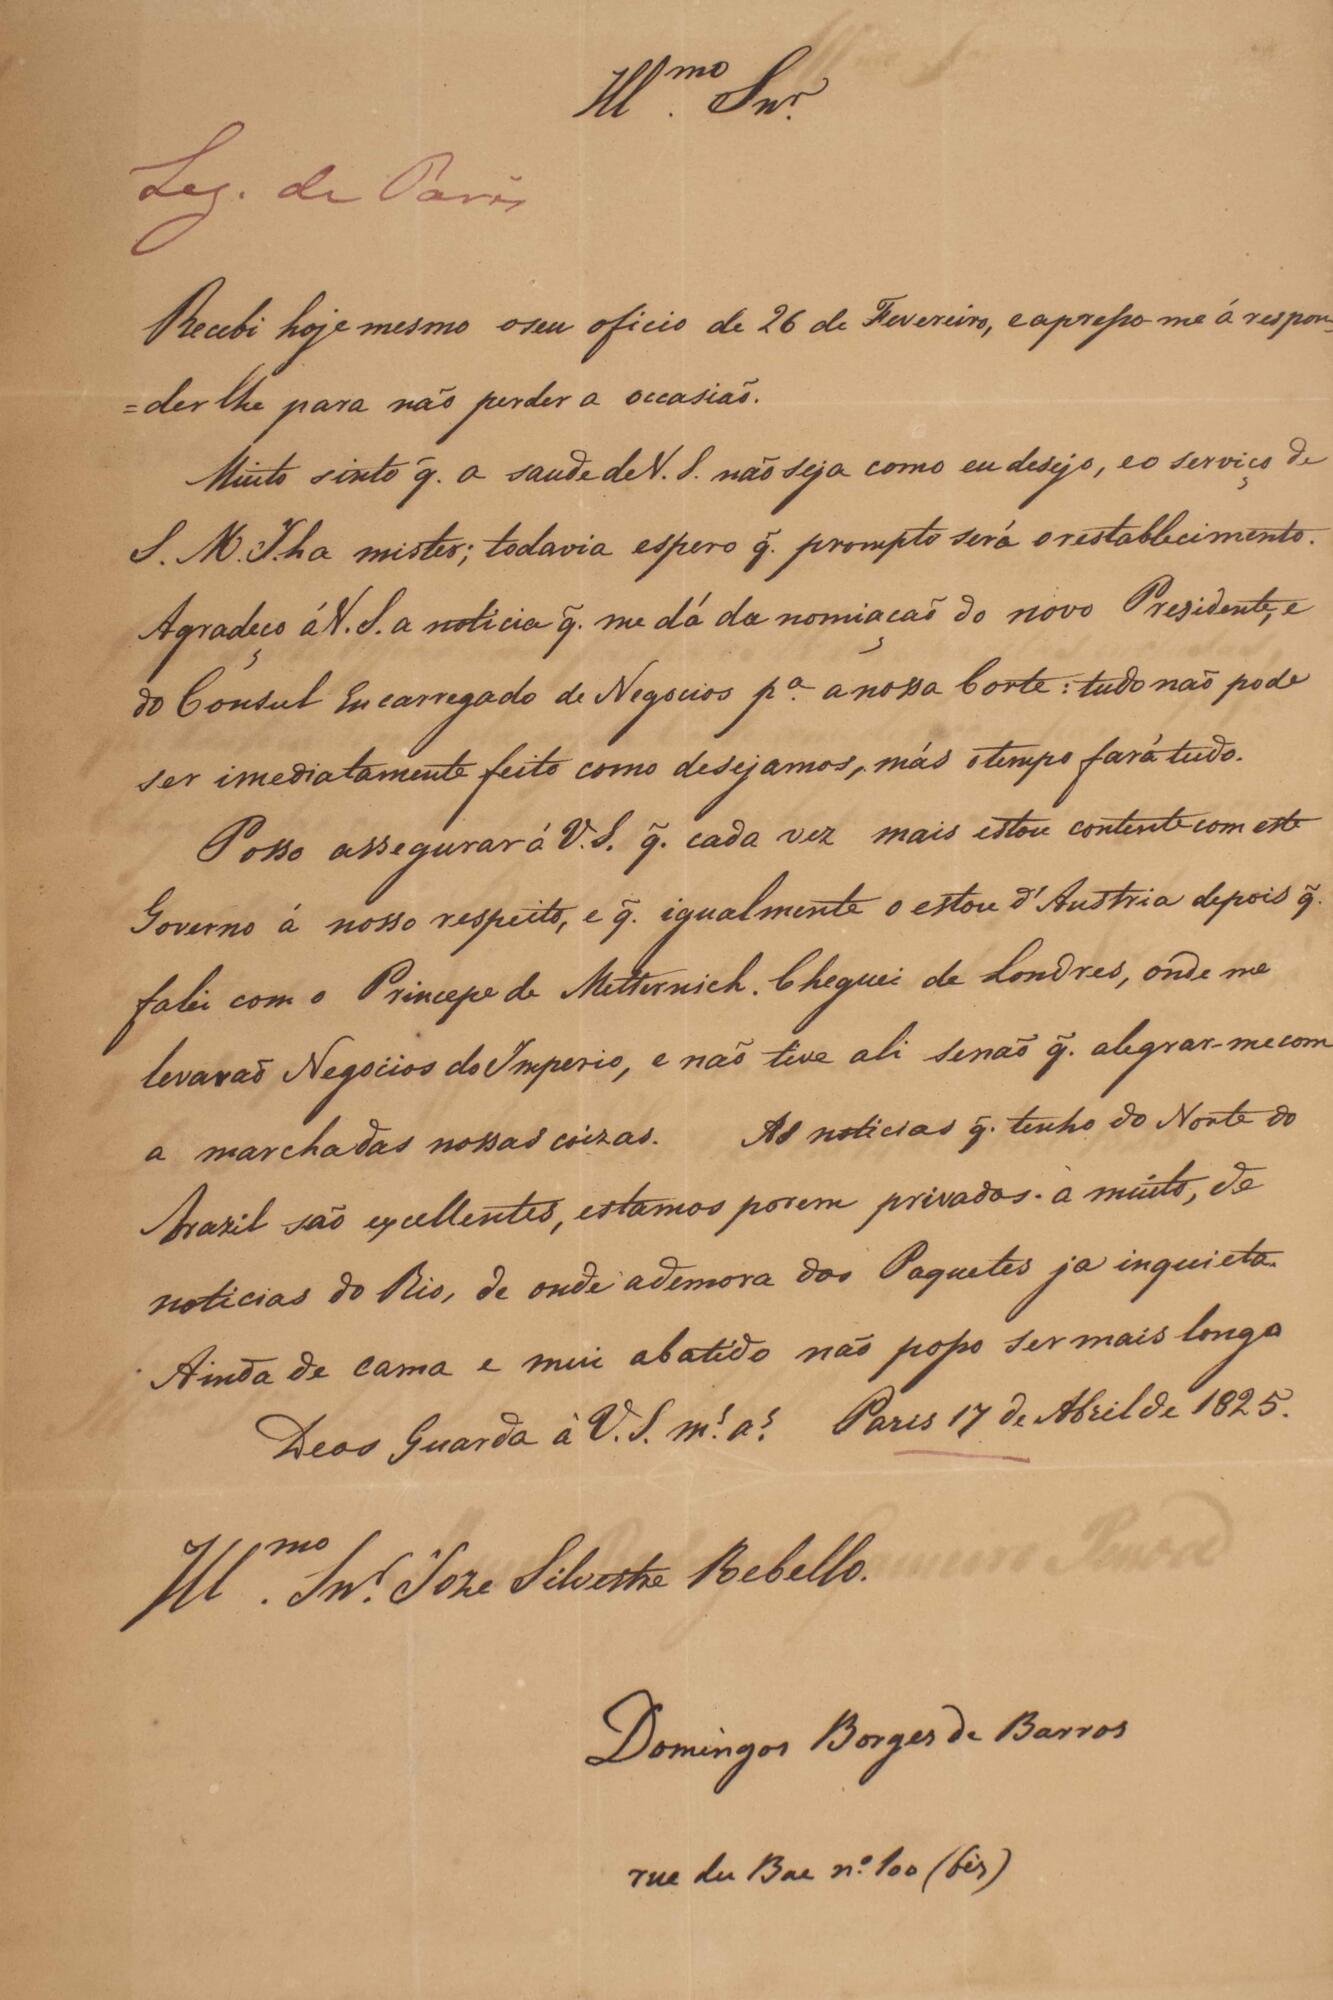 Ill.mo Snr.
Leg. de Paris
Recebi hoje mesmo o seu oficio de 26 de Fevereiro, e apresso me á respon=
=der lhe para não perder a occasião.
Muito sinto q̃. a saude de V. S. não seja como eu desejo, e o serviço de
S. M. I. ha mister; todavia espero q̃. prompto será o restablecimento.
Agradeço á V. S. a noticia q̃. me dá da nomiaçaõ do novo Presidente, e
do Consul Encarregado de Negocios pa. a nossa Corte: tudo naõ pode
ser imediatamente feito como desejamos, más o tempo fará tudo.
Posso assegurar á V. S. q̃. cada vez mais estou contente com este
Governo á nosso respeito, e q̃. igualmente o estou d'Austria depois q̃.
falei com o Princepe de Metternich. Cheguei de Londres, onde me
levaraõ Negocios do Imperio, e não tive ali senaõ q̃. alegrar-me com
a marcha das nossas coizas. As noticias q̃. tenho do Norte do
Brazil saõ excellentes, estamos porem privados. a muito, de
noticias do Rio, de onde a demora dos Paquetes ja inquieta.
Ainda de cama e mui abatido não posso ser mais longo
Deos Guarda à V. S. ms. as. Paris 17 de Abril de 1825.
Ill.mo Snr. Joze Silvestre Rebello.
Domingos Borges de Barros
rue du Bac no. 100 (bis)